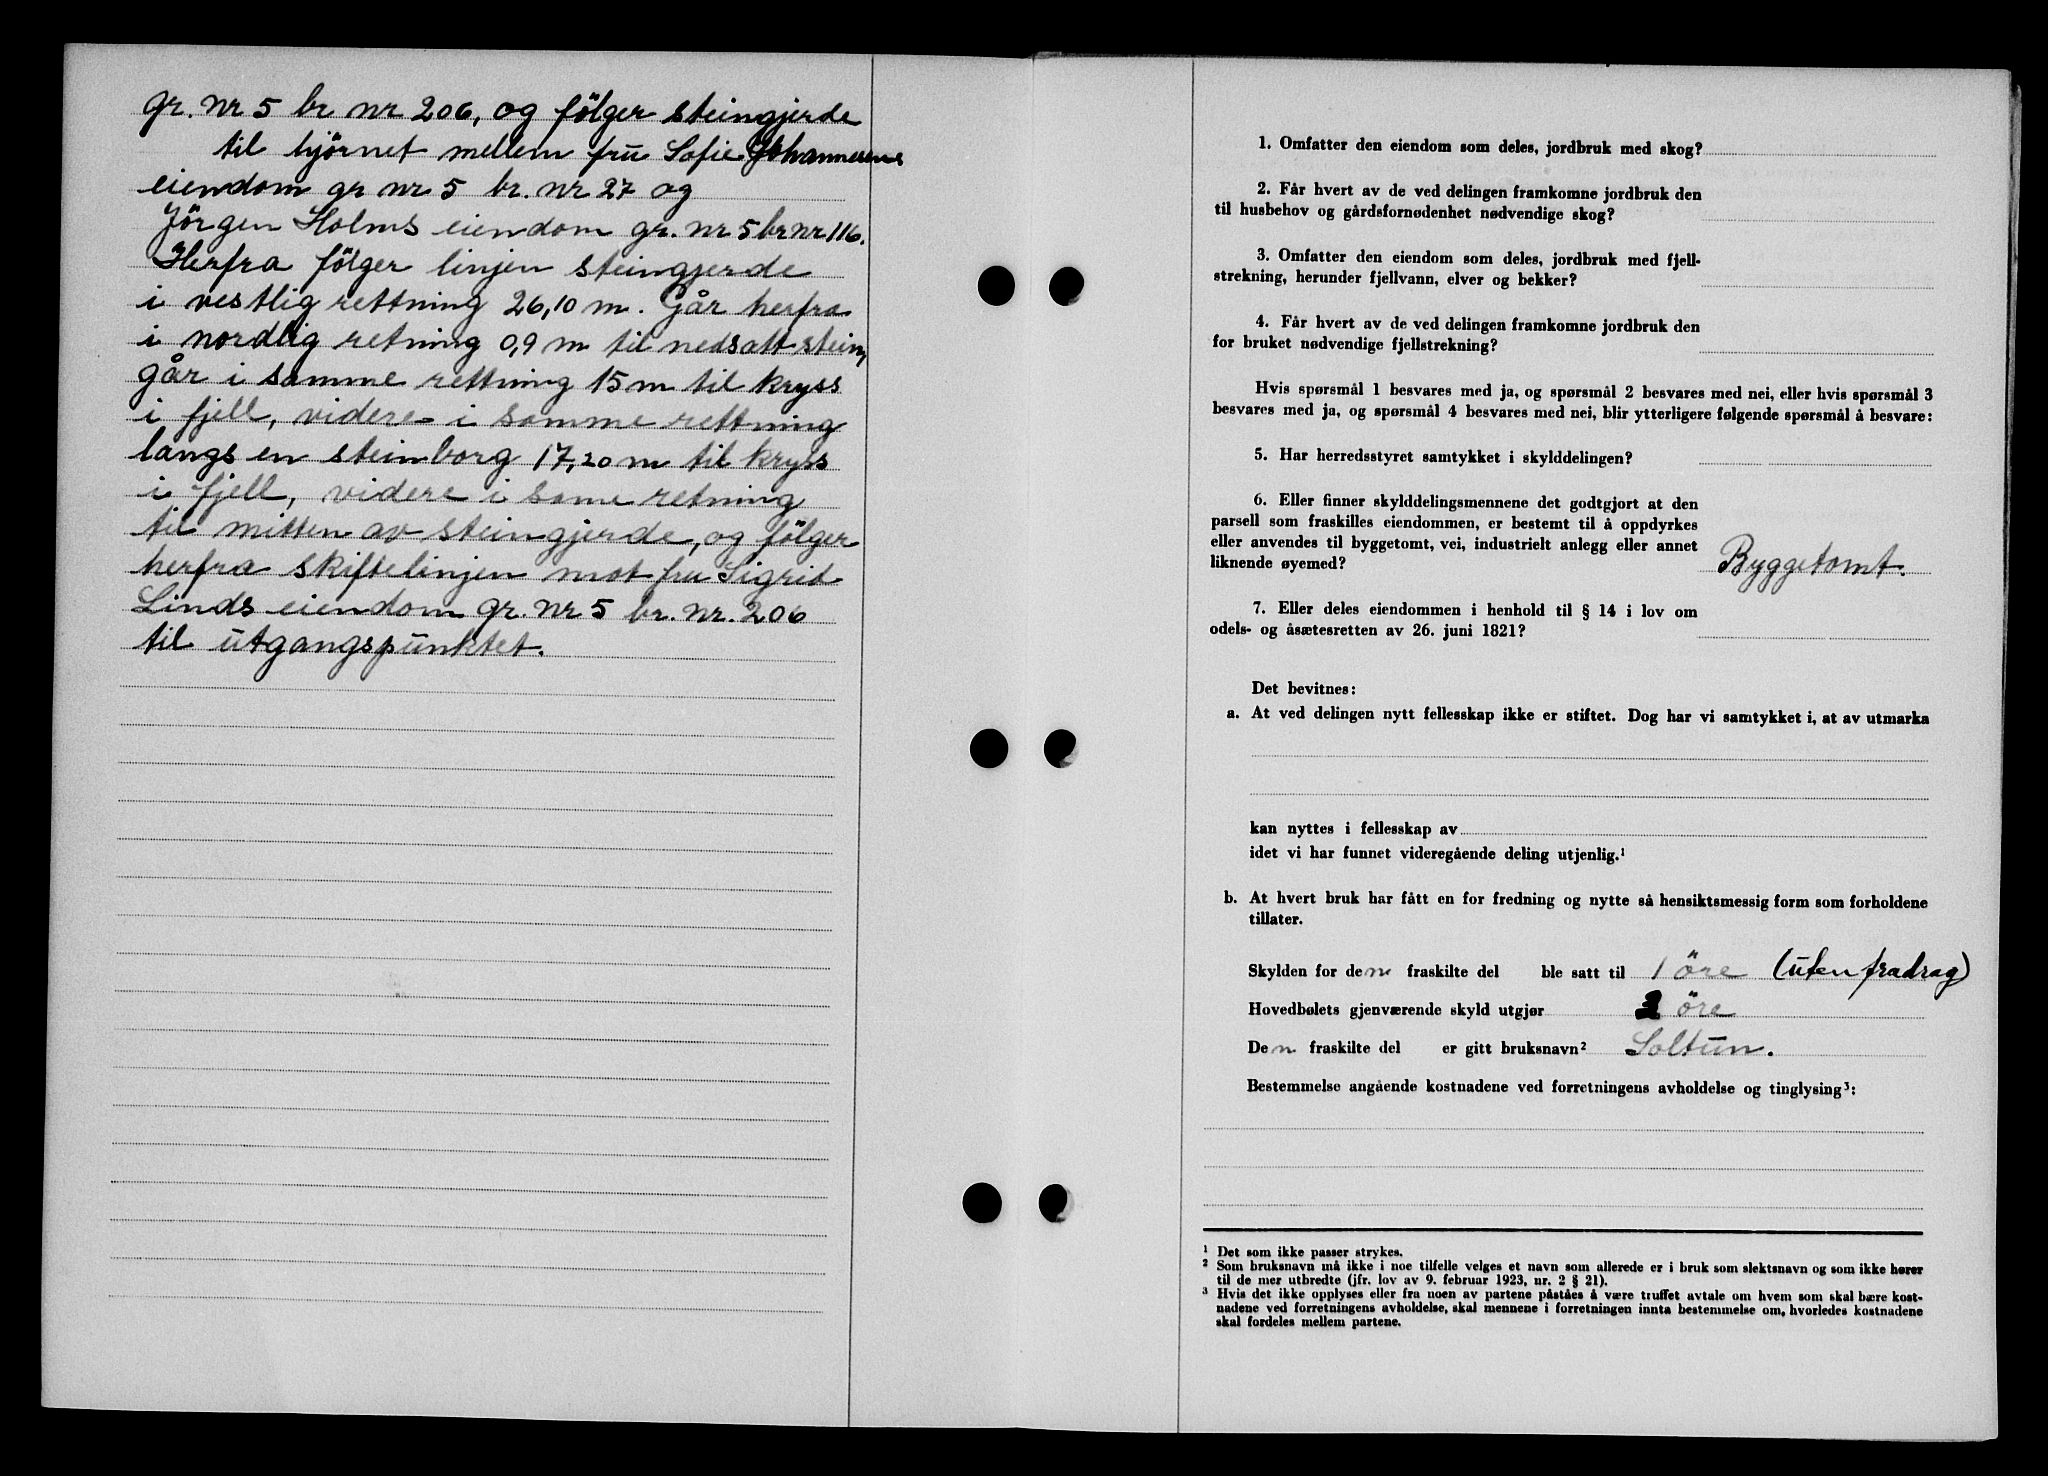 gr. nr 5 br nr 206, og følger steingjerde
til hjørnet mellem fru Sofie Johannesens
eiendom gr nr 5 br. nr 27 og
Jørgen Holms eiendom gr. nr 5 br nr 116.
Herfra følger linjen steingjerde
i vestlig rettning 26,10 m. Går herfra
i nordlig retning 0,9 m til nedsatt stein,
går i samme rettning 15 m til kryss
i fjell, videre i samme rettning
langs en steinborg 17,20 m til kryss
i fjell, videre i same retning
til mitten av steingjerde, og følger
herfra skiftelinjen mot fru Sigrid
Linds eiendom gr. nr 5 br. nr. 206
til utgangspunktet.
1. Omfatter den eiendom som deles, jordbruk med skog?
2. Får hvert av de ved delingen framkomne jordbruk den
til husbehov og gårdsfornødenhet nødvendige skog?
3. Omfatter den eiendom som deles, jordbruk med fjell-
strekning, herunder fjellvann, elver og bekker?
4. Får hvert av de ved delingen framkomne jordbruk den
for bruket nødvendige fjellstrekning?
Hvis spørsmål 1 besvares med ja, og spørsmål 2 besvares med nei, eller hvis spørsmål 3
besvares med ja, og spørsmål 4 besvares med nei, blir ytterligere følgende spørsmål å besvare:
5. Har herredsstyret samtykket i skylddelingen?
6. Eller finner skylddelingsmennene det godtgjort at den
parsell som fraskilles eiendommen, er bestemt til å oppdyrkes
eller anvendes til byggetomt, vei, industrielt anlegg eller annet
liknende øyemed? Byggetomt.
7. Eller deles eiendommen i henhold til § 14 i lov om
odels- og åsætesretten av 26. juni 1821?
Det bevitnes:
a. At ved delingen nytt fellesskap ikke er stiftet. Dog har vi samtykket i, at av utmarka
kan nyttes i fellesskap av
idet vi har funnet videregående deling utjenlig.¹
b. At hvert bruk har fått en for fredning og nytte så hensiktsmessig form som forholdene
tillater.
Skylden for den fraskilte del ble satt til 1 øre (uten fradrag)
Hovedbølets gjenværende skyld utgjør øre
Den fraskilte del er gitt bruksnavn² Soltun.
Bestemmelse angående kostnadene ved forretningens avholdelse og tinglysing³:
¹ Det som ikke passer strykes.
² Som bruksnavn må ikke i noe tilfelle velges et navn som allerede er i bruk som slektsnavn og som ikke hører
til de mer utbredte (jfr. lov av 9. februar 1923, nr. 2 § 21).
³ Hvis det ikke opplyses eller fra noen av partene påståes å være truffet avtale om hvem som skal bære kost-
nadene ved forretningens avholdelse, skal mennene i forretningen innta bestemmelse om, hvorledes kostnadene
skal fordeles mellem partene.